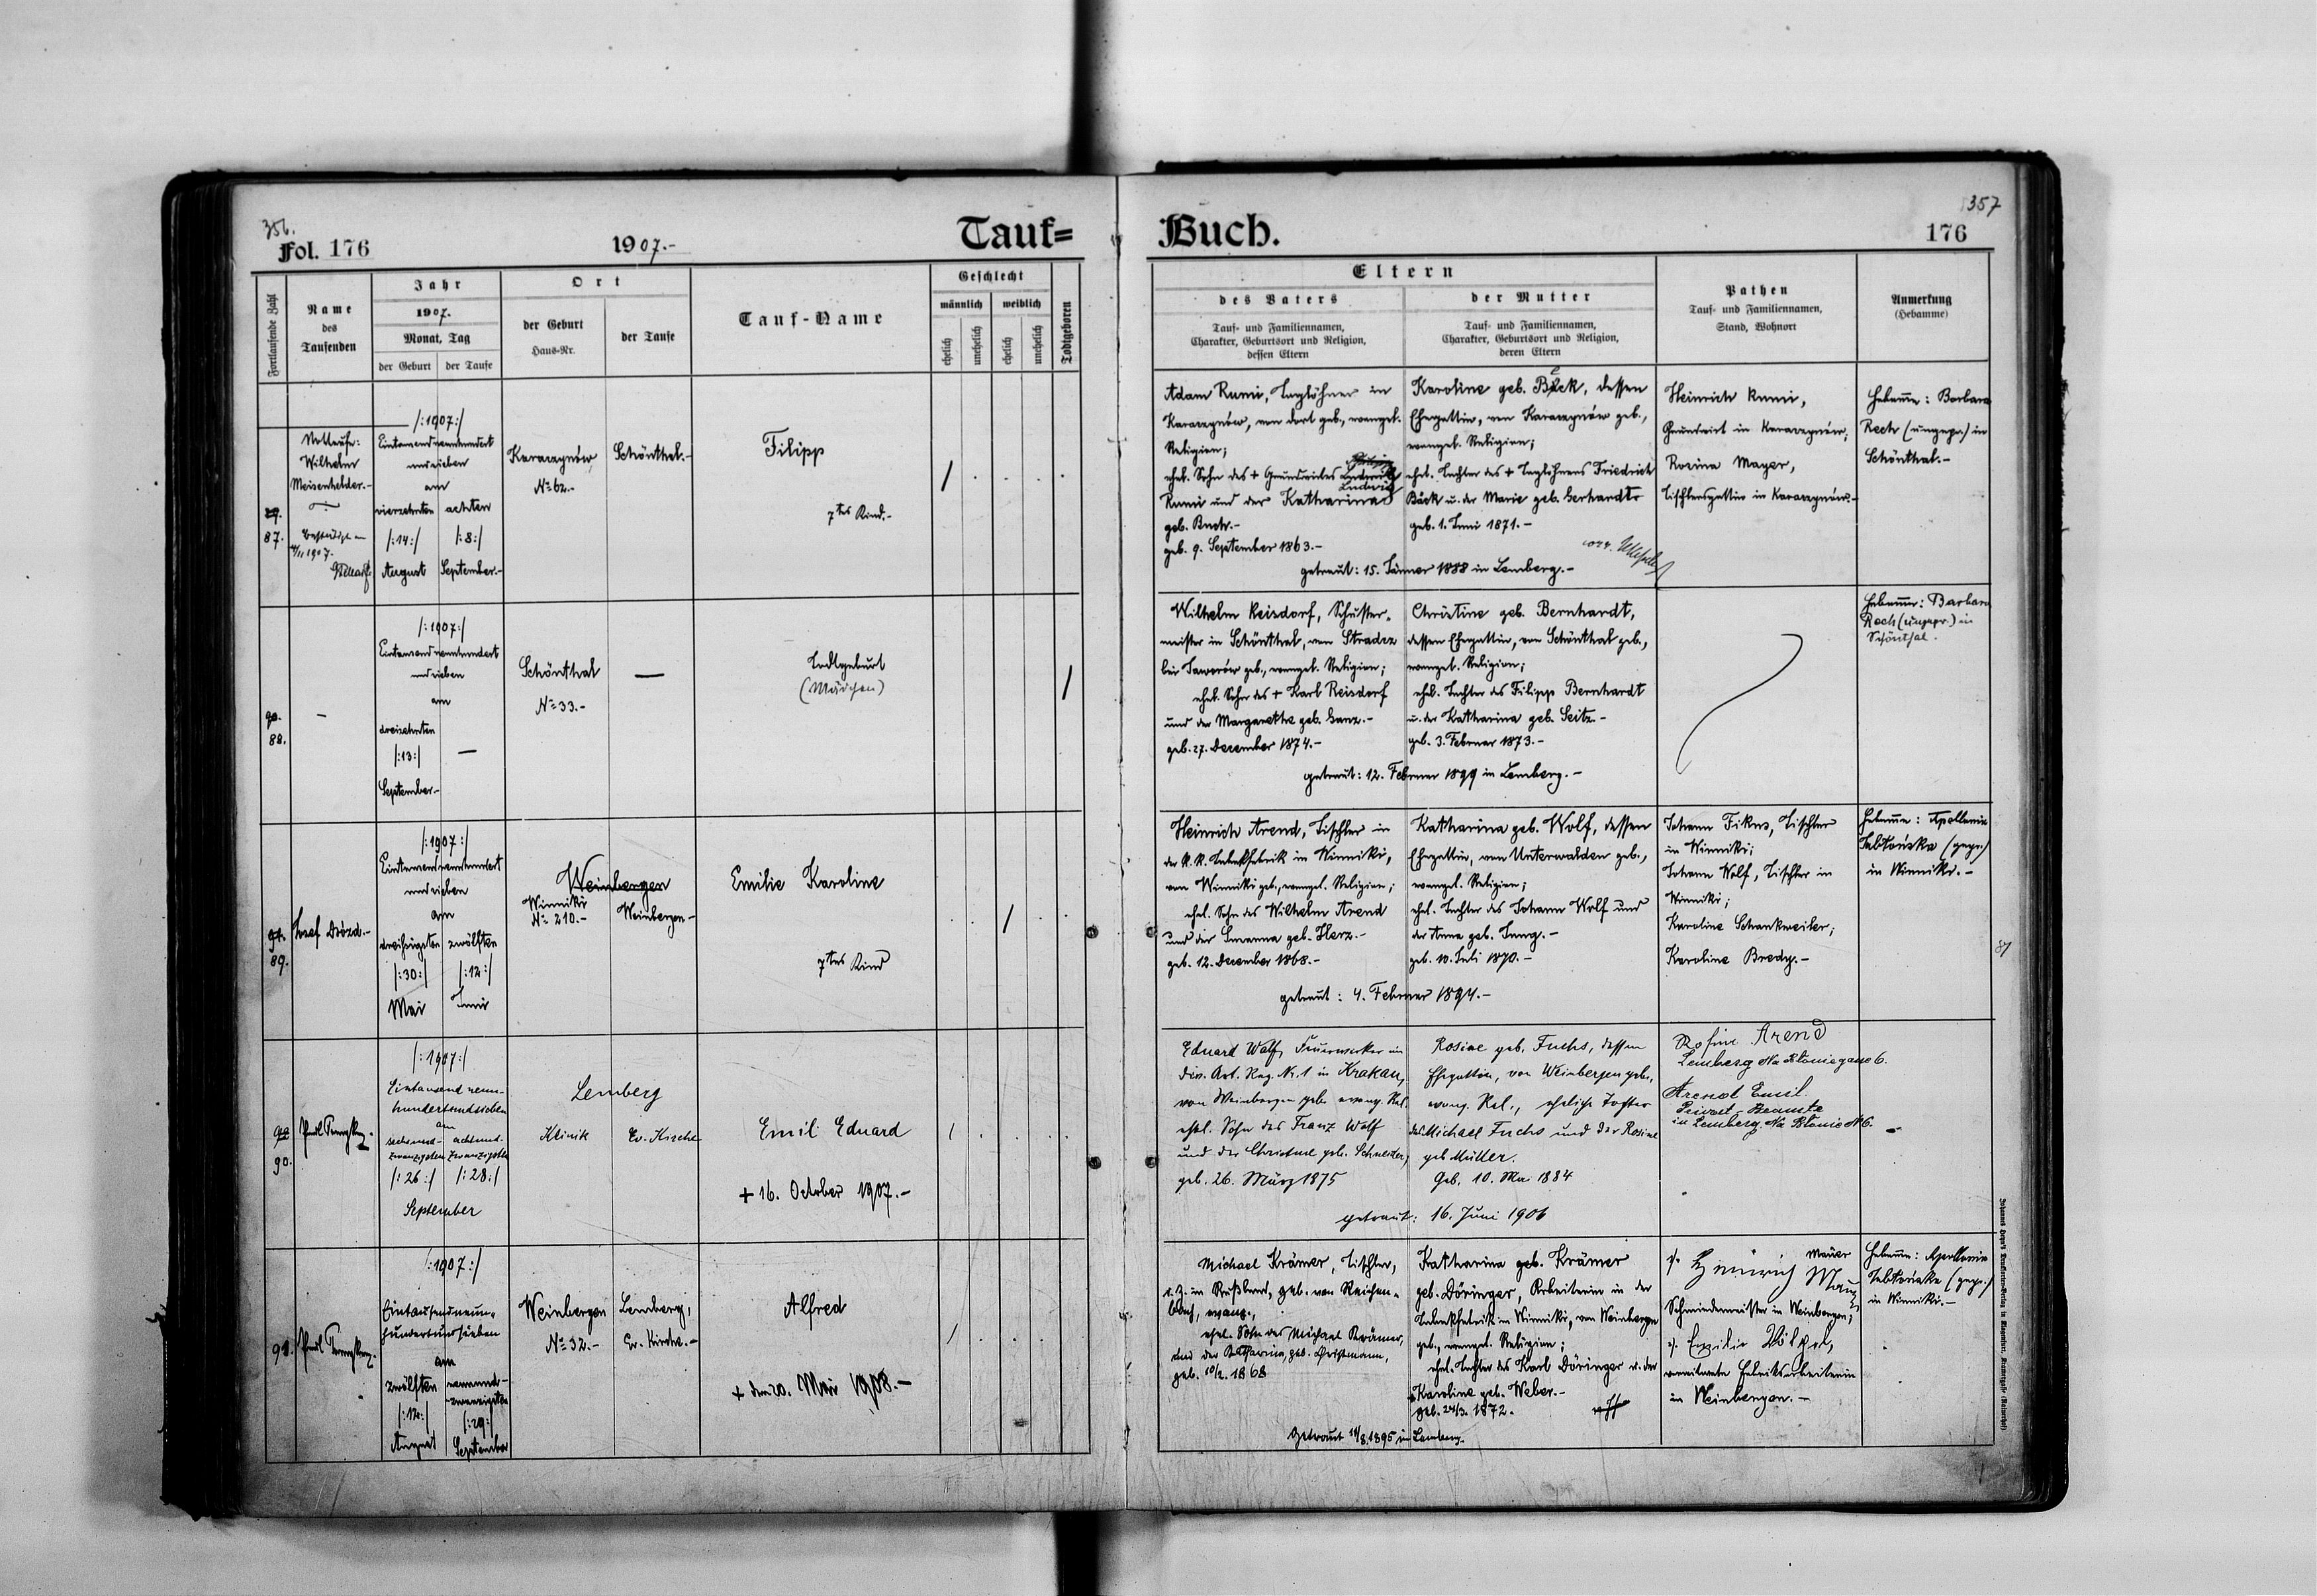 356.
Fol. 176
1907.-
Tauf=
Buch.
357
176
Fortlaufende Zahl
Name
des
Taufenden
Jahr
1907.
Monat, Tag
der Geburt
der Taufe
Ort
der Geburt
Haus-Nr.
der Taufe
Tauf-Name
Geschlecht
männlich
weiblich
ehelich
unehelich
ehelich
unehelich
Todtgeboren
Eltern
des Vaters
Tauf- und Familiennamen,
Charakter, Geburtsort und Religion,
dessen Eltern
der Mutter
Tauf- und Familiennamen,
Charakter, Geburtsort und Religion,
deren Eltern
Pathen
Tauf- und Familiennamen,
Stand, Wohnort
Anmerkung
(Hebamme)
89.
87.
Nottaufe:
Wilhelm
Meisenhelder.-
1907.
/:1907:/
Eintausendneunhundert
und sieben
am
vierzehnten
/:14:/
August
achten
/:8:/
September.-
Karaczynów
No 62.-
Schönthal.-
Filipp
7tes Kind.-
Adam Rumi, Taglöhner in
Karaczynów, von dort geb., evangel.
Religion;
ehel. Sohn des + Grundwirtes
Ludwig
Rumi und der Katharina
geb. Buch.-
geb. 9. September 1863.-
Karoline geb. Beck, dessen
Ehegattin, von Karaczynów geb.,
evangel. Religion;
ehel. Tochter des + Taglöhners Friedrich
Bäck u. der Marie geb. Gerhardt
geb. 1. Juni 1871.-
getraut: 15. Jänner 1888 in Lemberg.-
Heinrich Rumi,
Grundwirt in Karaczynów;
Rosina Mayer,
Tischlersgattin in Karaczynów.-
Hebamme: Barbara
Rech (ungepr.) in
Schönthal.-
90.
88.
-
/:1907:/
Eintausendneunhundert
und sieben
am
dreizehnten
/:13:/
September.-
—
Schönthal
No 33.-
—
Todtgeburt
(Mädchen)
Wilhelm Reisdorf, Schuster-
meister in Schönthal, von Stradcz
bei Jaworów geb., evangel. Religion;
ehel. Sohn des + Karl Reisdorf
und der Margarethe geb. Ganz.-
geb. 27. Dezember 1874.-
Christine geb. Bernhardt,
dessen Ehegattin, von Schönthal geb.,
evangel. Religion;
ehel. Tochter des Filipp Bernhardt
u. der Katharina geb. Seitz.-
geb. 3. Februar 1873.-
getraut: 12. Februar 1899 in Lemberg.-
Hebamme: Barbara
Rech (ungepr.) in
Schönthal.
91.
89.
Josef Drózd.-
/:1907:/
Eintausendneunhundert
und sieben
am
dreißigsten
/:30:/
Mai
zwölften
/:12:/
Juni
Weinbergen
Winniki
No 210.-
Weinbergen-
Emilie Karoline
7tes Kind
Heinrich Arend, Tischler in
der k. k. Tabakfabrik in Winniki,
von Winniki geb., evangel. Religion;
ehel. Sohn des Wilhelm Arend
und der Susanna geb. Herz.-
geb. 12. Dezember 1868.-
Katharina geb. Wolf, dessen
Ehegattin, von Unterwalden geb.,
evangel. Religion;
ehel. Tochter des Johann Wolf und
der Anna geb. Jung.-
geb. 10. Juli 1870.-
getraut: 4. Februar 1894.-
Johann Fikus, Tischler
in Winniki;
Johann Wolf, Tischler in
Winniki;
Karoline Schankweiler;
Karoline Bredy.-
Hebamme: Apollonia
Jabłońska (gepr.)
in Winniki.-
90.
/:1907:/
Eintausend neun-
hundertundsieben
am
sechsund-
zwanzigsten
/:26:/
achtund-
zwanzigsten
/:28:/
September
Lemberg
Klinik
Ev. Kirche
Emil Eduard
+ 16. October 1907.-
Eduard Wolf, Feuerwerker im
Div. Art. Reg. Nr. 1 in Krakau,
von Weinbergen geb. evang. Rel.
ehel. Sohn des Franz Wolf
und der Christine geb. Schneider,
geb. 26. März 1875
Rosine geb. Fuchs, dessen
Ehegattin, von Weinbergen geb.,
evang. Rel., eheliche Tochter
des Michael Fuchs und der Rosine
geb. Müller.
Geb. 10. Mai 1884
getraut: 16. Juni 1906
Rosine Arend
Lemberg Na Błoniegasse 6.
Arend Emil
Privat-Beamte
in Lemberg Na Błonie No 6.
91.
/:1907:/
Eintausendneun-
hundertundsieben
am
zwölften
/:12:/
August
neunund-
zwanzigsten
/:29:/
September
Weinbergen
No 32.-
Lemberg,
Ev. Kirche.-
Alfred
+ den 20. Mai 1908.-
Michael Krämer, Tischler,
z. Z. in Rußland, geb. von Reichen-
bach, evang.,
ehel. Sohn des Michael Krämer,
und der Katharina, geb. Christmann,
geb. 10/2. 1868
Katharina geb. Krämer
geb. Döringer, Arbeiterin in der
Tabakfabrik in Winniki, von Weinbergen
geb., evangel. Religion;
ehel. Tochter des Karl Döringer u. der
Karoline geb. Weber.-
geb. 24/3. 1872.
Getraut 11/8. 1895 in Lemberg.
1. Heinrich Mauer
Schmiedemeister in Weinbergen;
2. Emilie Hölzel,
verwitwete Fabriksarbeiterin
in Weinbergen.-
Hebamme: Apollonia
Jabłońska (gepr.)
in Winniki.-